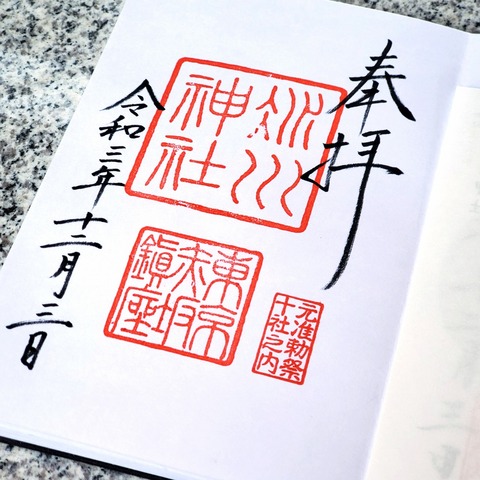 奉拝
氷川
神社
東京
赤坂
鎮座
元准勅祭
十社之内
令和三年十二月三日